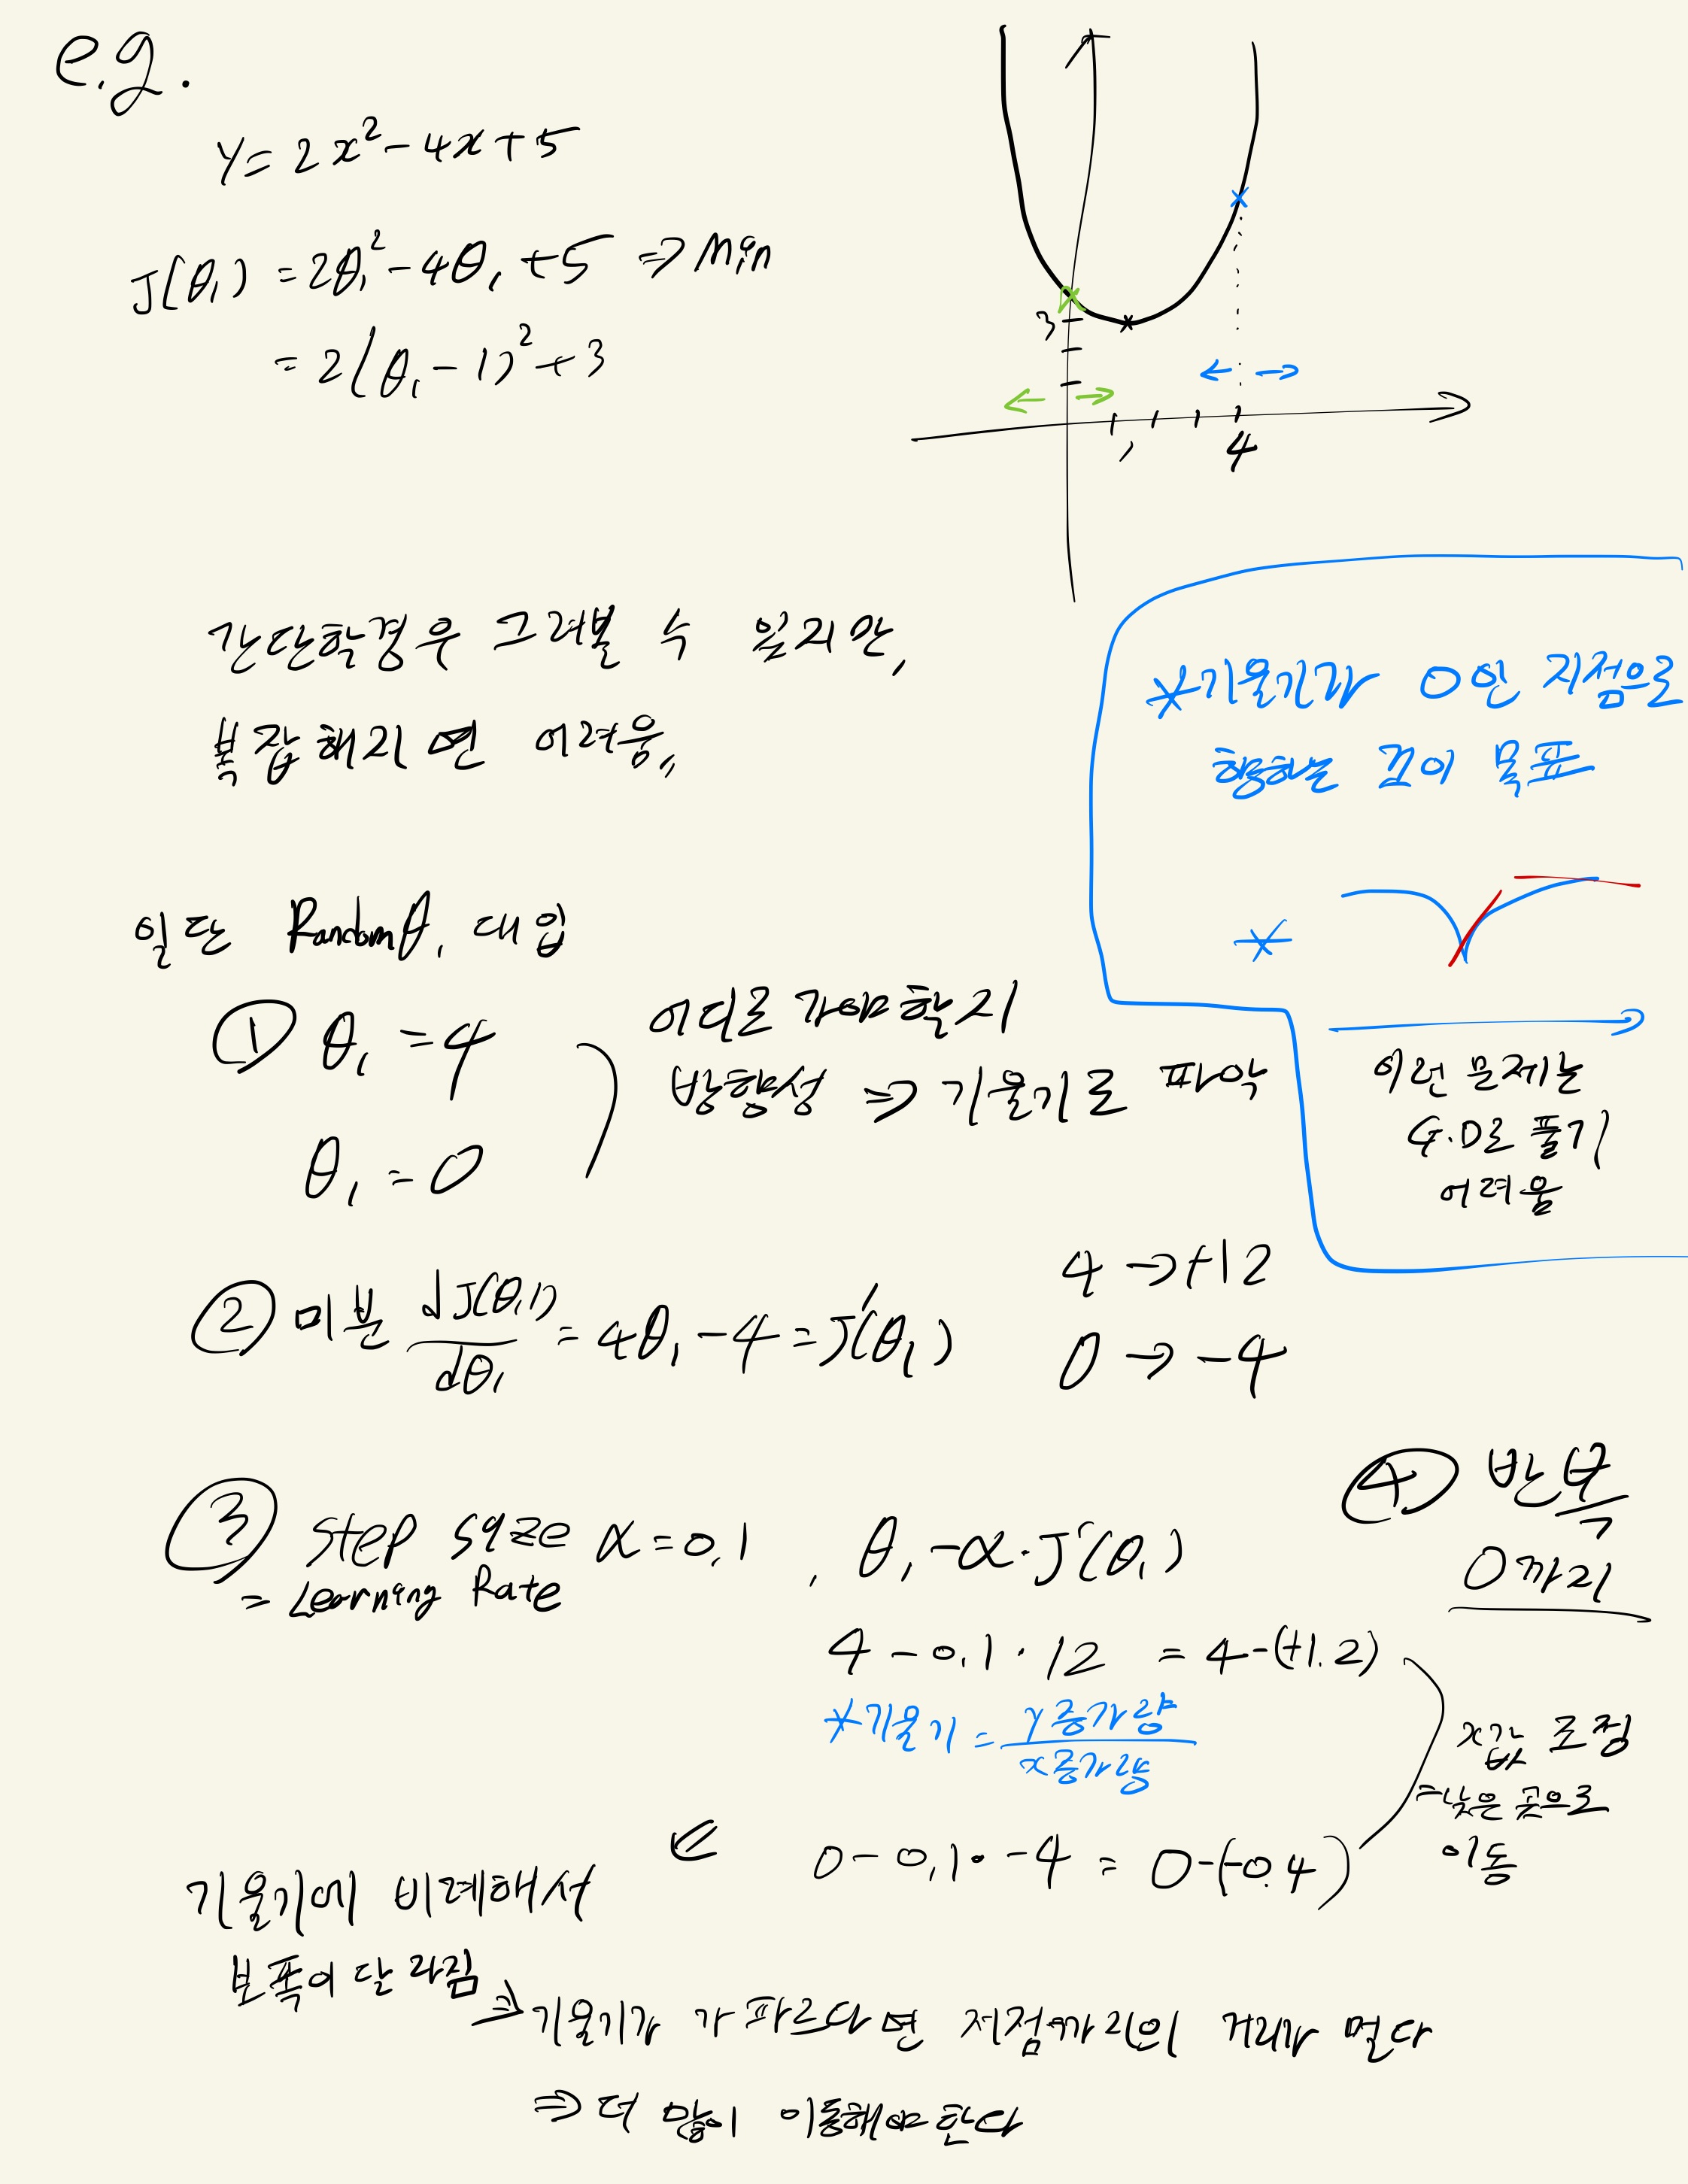 e.g.
y = 2x² - 4x + 5
J(θ₁) = 2θ₁² - 4θ₁ + 5 => Min
= 2(θ₁ - 1)² + 3
3
1
4
간단한경우 그려볼 수 있지만,
복잡해지면 어려움,,
*기울기가 0인 지점으로
향하는 것이 목표
*
이런 문제는
G.D로 풀기
어려움
일단 Random θ₁ 대입
① θ₁ = 4
θ₁ = 0
어디로 가야할지
방향성 => 기울기로 파악
② 미분 dJ(θ₁)/dθ₁ = 4θ₁ - 4 = J'(θ₁)
4 → +12
0 → -4
③ Step size α = 0.1 , θ₁ - α · J'(θ₁)
= Learning Rate
④ 반복
0까지
4 - 0.1 · 12 = 4 - (+1.2)
*기울기 = y증가량/x증가량
0 - 0.1 · -4 = 0 - (-0.4)
x값 조정
= 낮은 곳으로
이동
기울기에 비례해서
보폭이 달라짐
=> 기울기가 가파르다면 저점까지의 거리가 멀다
=> 더 많이 이동해야한다